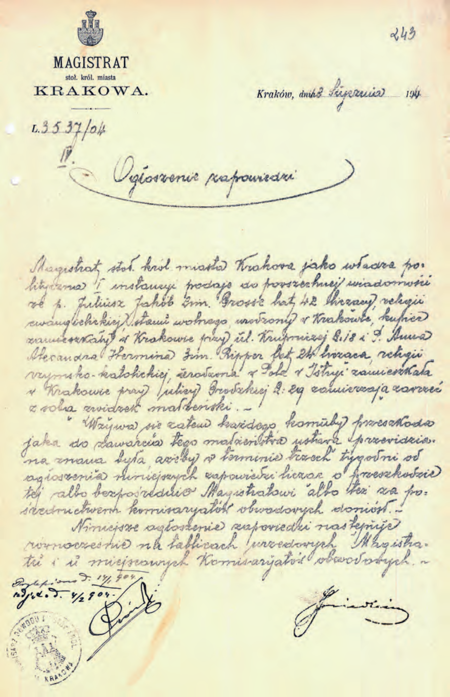 243
MAGISTRAT
stoł. król. miasta
KRAKOWA.
Kraków, dnia 13 Stycznia 1904
L. 3537/04
IV.
Ogłoszenie zapowiedzi
Magistrat stoł. król. miasta Krakowa jako władza po-
lityczna I instancyi podaje do powszechnej wiadomości
że p. Juliusz Jakób 2im. Grosse lat 42 liczący, religii
ewangelickiej, stanu wolnego urodzony w Krakowie, kupiec
zamieszkały w Krakowie przy ul. Krupniczej L: 18 i P. Anna
Alexandra Hermina 3im. Ripper lat 24 licząca, religii
rzymsko-katolickiej, urodzona w Pola w Istryi zamieszkała
w Krakowie przy ulicy Grodzkiej L: 29 zamierzają zawrzeć
z sobą związek małżeński. -
Wzywa się zatem każdego komuby przeszkoda
jaka do zawarcia tego małżeństwa ustawą przewidzia-
na znaną była, ażeby w terminie trzech tygodni od
ogłoszenia niniejszych zapowiedzi licząc o przeszkodzie
tej albo bezpośrednio Magistratowi albo też za po-
średnictwem komisaryatów obwodowych doniósł. -
Niniejsze ogłoszenie zapowiedzi następuje
równocześnie na tablicach urzędowych Magistra-
tu i u miejscowych Komisaryatów obwodowych. -
KRAKOWA